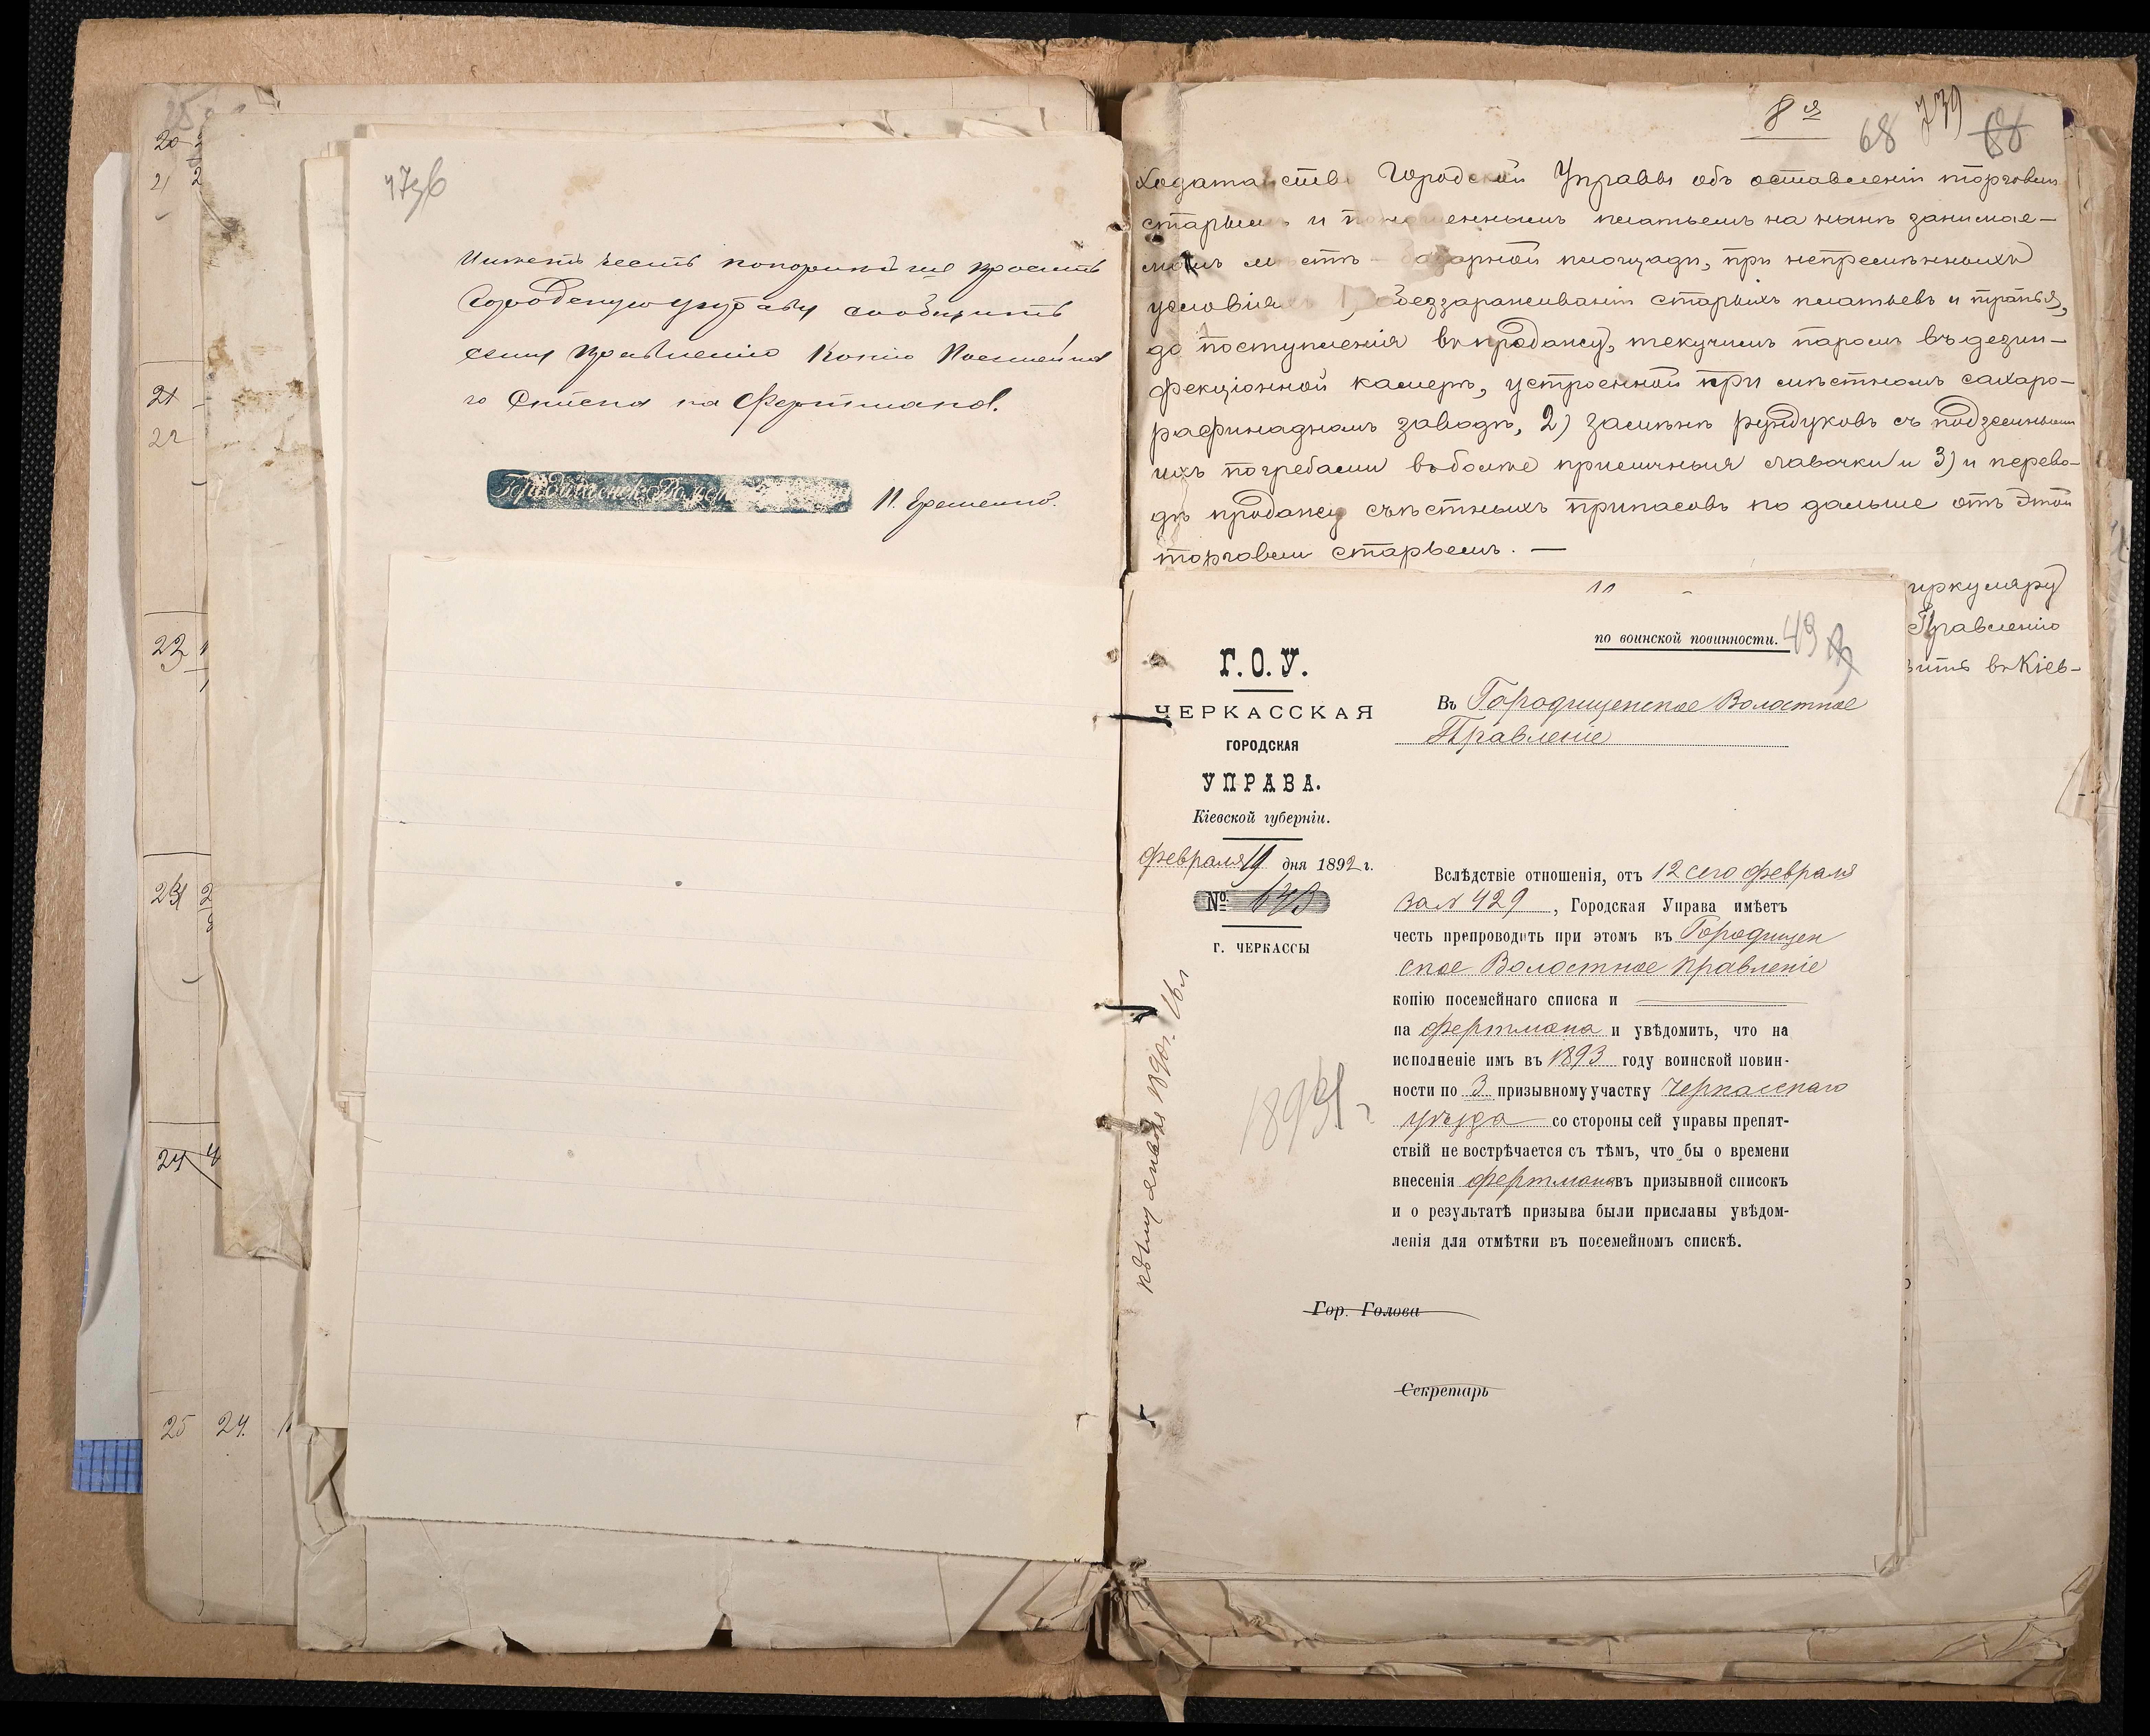 20
21
21
22
23
25 24
Имеетъ честь покорнѣйше просить
Городскую управу сообщить
сему правленію копію Посемейна
го Списка на Фертмана.
8я
68 739 68
Ходатайств Городской Управы объ оставленіи торговли
старым и платьемъ на нынѣ занимае-
мѣстѣ базарной площади, при непремѣнныхъ
условіях 1) обеззараживаніи старыхъ платьевъ и тряпья,
до поступленія въ продажу, текучимъ паромъ въ дезин-
фекціонной камерѣ, устроенной при мѣстномъ сахаро-
рафинадномъ заводѣ, 2) замѣнѣ рундуковъ съ подземными
ихъ погребами въ болѣе приличныя лавочки и 3) и перево-
дѣ продажи съѣстныхъ припасовъ по дальше отъ этой
торговли старьемъ. —
иркуляру
Правленію
вить въ Кіев-
по воинской повинности.
49
Г.О.У.
ЧЕРКАССКАЯ
ГОРОДСКАЯ
УПРАВА.
Кіевской губерніи.
Февраля 19 дня 1892 г.
№ 643
г. ЧЕРКАССЫ
Въ Городищенское Волостное
Правленіе
Вслѣдствіе отношенія, отъ 12 сего февраля
за № 429, Городская Управа имѣетъ
честь препроводить при этомъ въ Городищен
ское Волостное Правленіе
копію посемейнаго списка и
на Фертмана и увѣдомить, что на
исполненіе имъ въ 1893 году воинской повин-
ности по 3 призывному участку Черкасскаго
уѣзда со стороны сей управы препят-
ствій не встрѣчается съ тѣмъ, что бы о времени
внесенія Фертмана въ призывной списокъ
и о результатѣ призыва были присланы увѣдом-
ленія для отмѣтки въ посемейномъ спискѣ.
Гор. Голова
Секретарь
къ 1му января 1890 г. 16 л